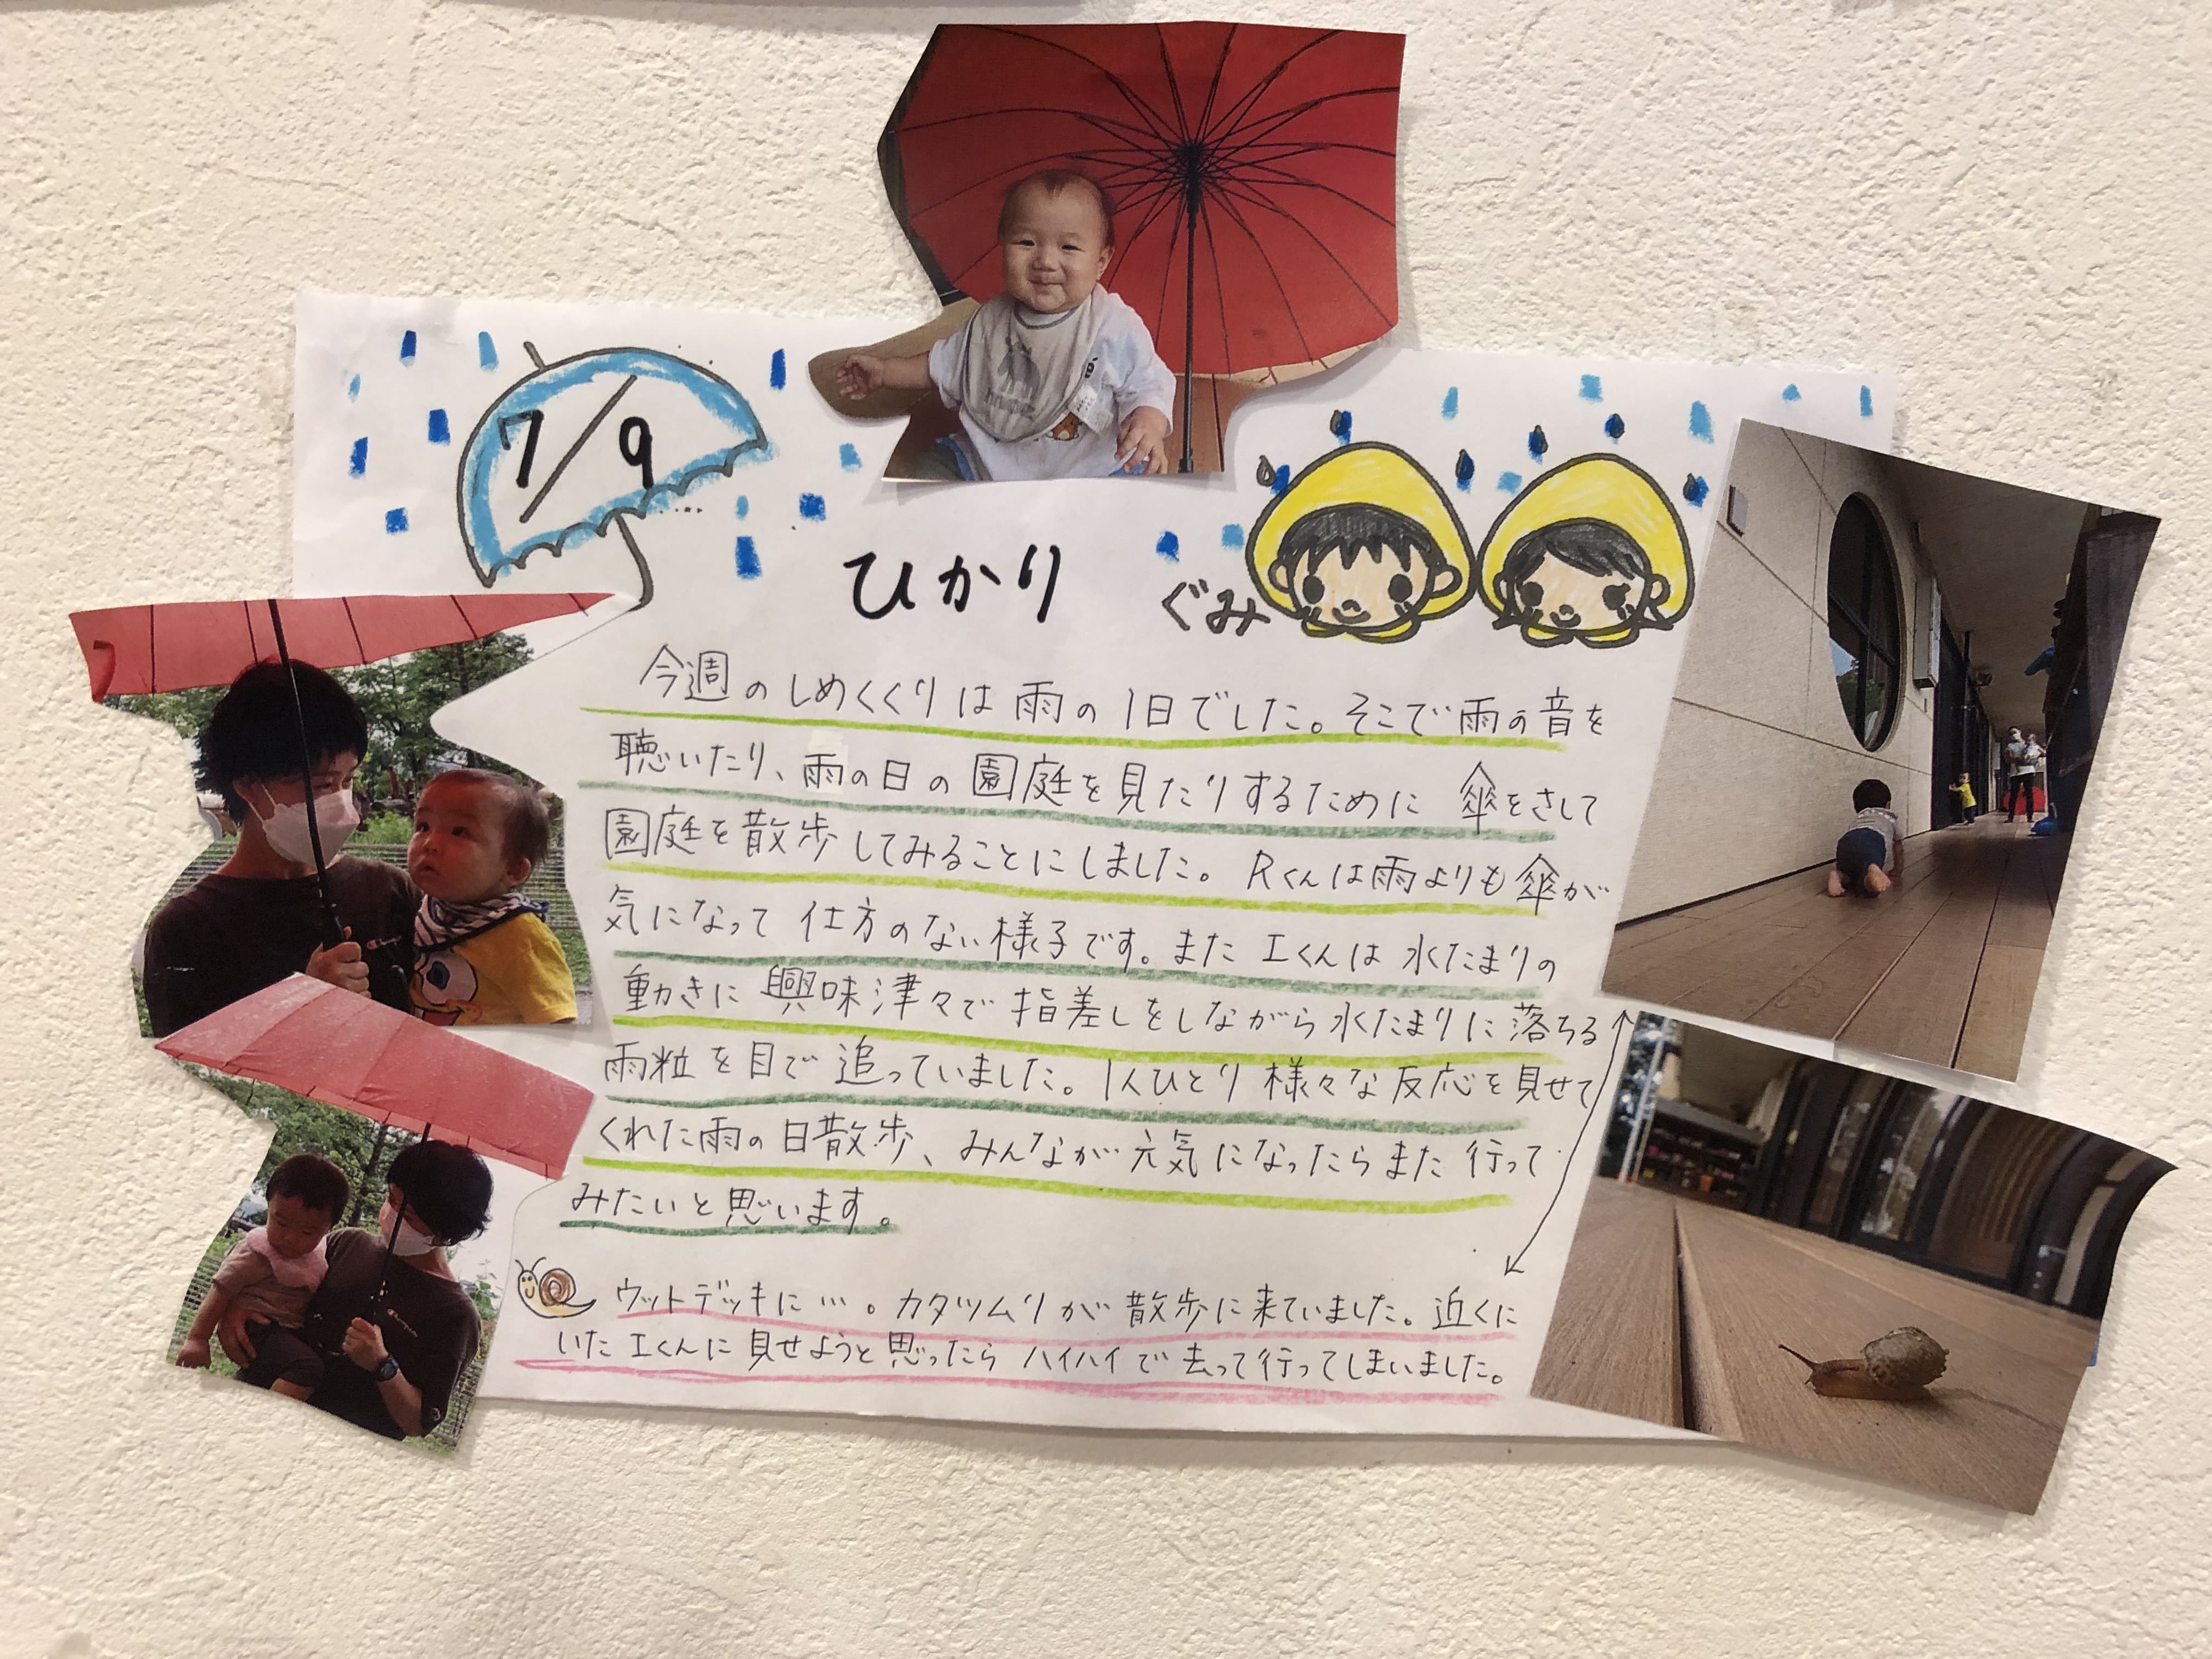 7/9
ひかり ぐみ
今週のしめくくりは雨の1日でした。そこで雨の音を
聴いたり、雨の日の園庭を見たりするために 傘をさして
園庭を散歩してみることにしました。Rくんは雨よりも傘が
気になって仕方のない様子です。また Iくんは水たまりの
動きに興味津々で指差しをしながら水たまりに落ちる
雨粒を目で追っていました。1人ひとり様々な反応を見せて
くれた雨の日散歩、みんなが元気になったらまた行って
みたいと思います。
ウットデッキに…。カタツムリが散歩に来ていました。近くに
いた Iくんに見せようと思ったらハイハイで去って行ってしまいました。